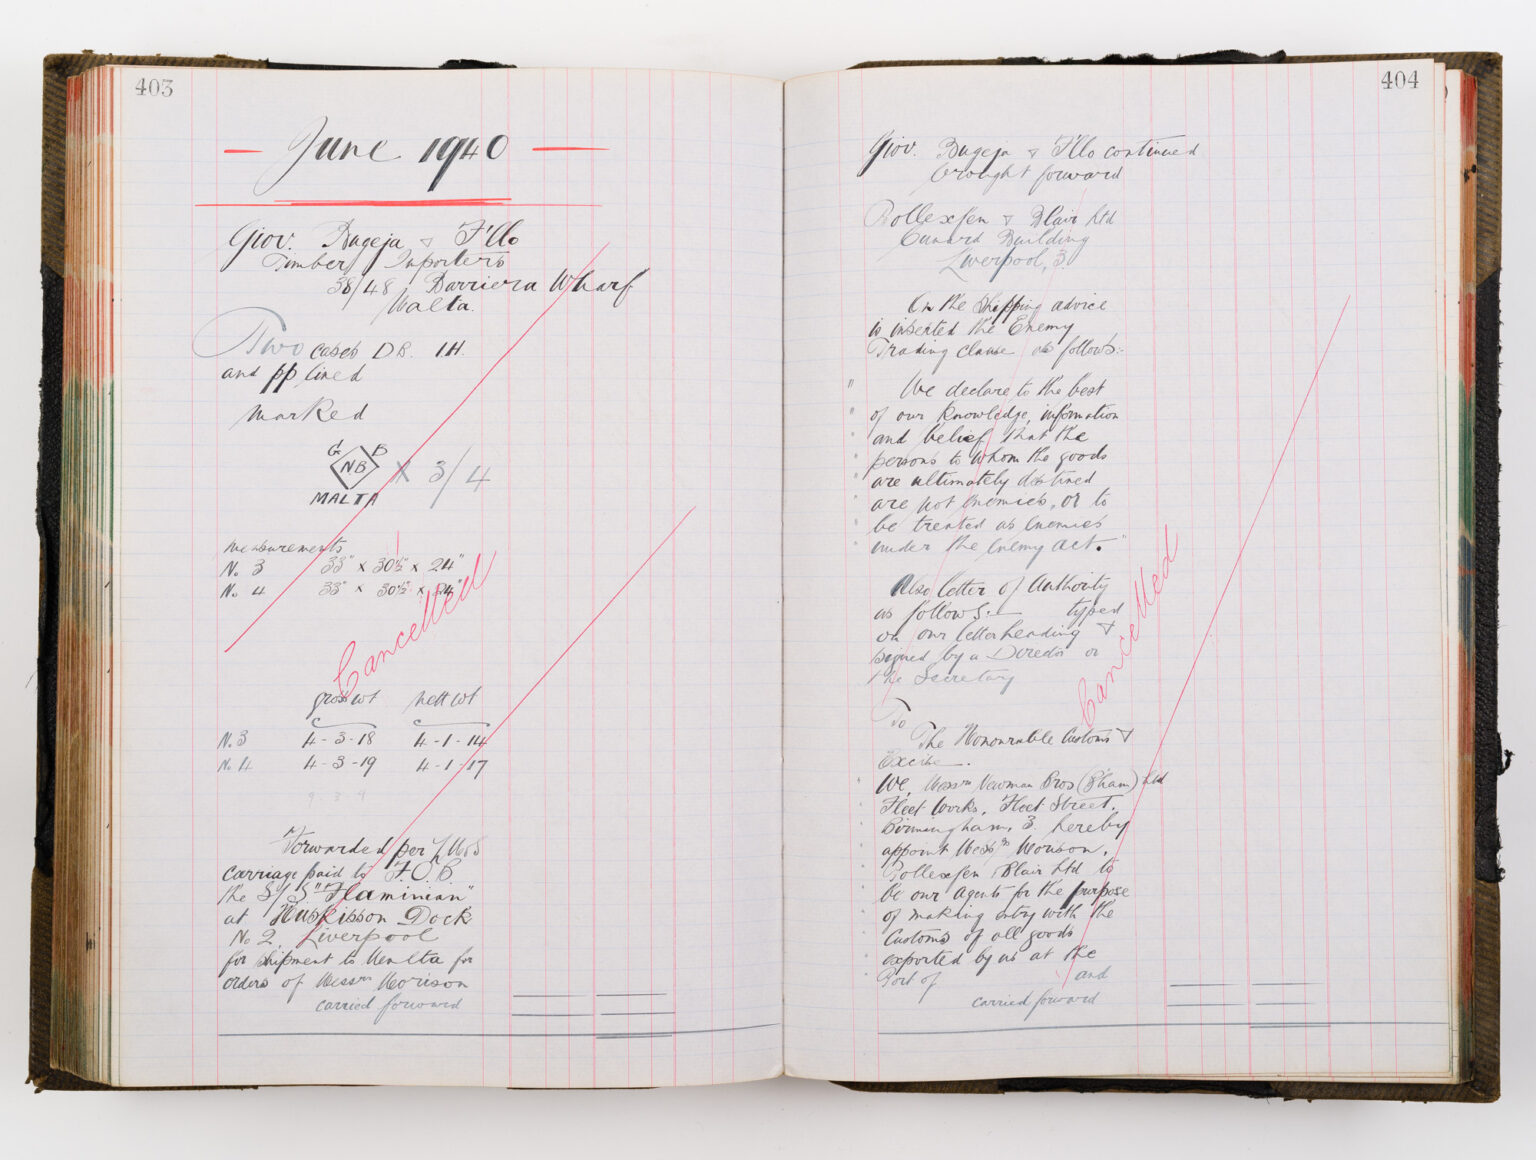 403
June 1940
Giov. Bugeja & F'llo
Timber Importers
38/48 Barriera Wharf
Malta.
Two cases D.B. I.H.
and pp lined
marked
G B
NB X 3/4
MALTA
measurements
No. 3 33" x 30½" x 24"
No. 4 33" x 30½" x 24"
Cancelled
gross wt nett wt
N. 3 4-3-18 4-1-14
No. 4 4-3-19 4-1-17
9-3-9
Forwarded per LMS
carriage paid to F.O.B
the S/S "Flaminian"
at Huskisson Dock
No 2, Liverpool
for shipment to Malta for
orders of Messrs Morison
carried forward
404
Giov. Bugeja & F'llo continued
brought forward
Pollexfen & Blair Ltd
Cunard Building
Liverpool, 3
On the shipping advice
is inserted the Enemy
Trading clause as follows:-
" We declare to the best
" of our knowledge, information
" and belief that the
" persons to whom the goods
" are ultimately destined
" are not enemies, or to
" be treated as enemies
" under the enemy act."
Also letter of Authority
as follows:- typed
on our letterheading &
signed by a Director or
the Secretary
Cancelled
To
The Honourable Customs &
Excise.
" We, Messrs Newman Bros (B'ham) Ltd
" Fleet Works, Fleet Street,
" Birmingham, 3. hereby
" appoint Messrs Morison,
" Pollexfen Blair Ltd to
" be our agents for the purpose
" of making entry with the
" Customs of all goods
" exported by us at the
" Port of and
carried forward